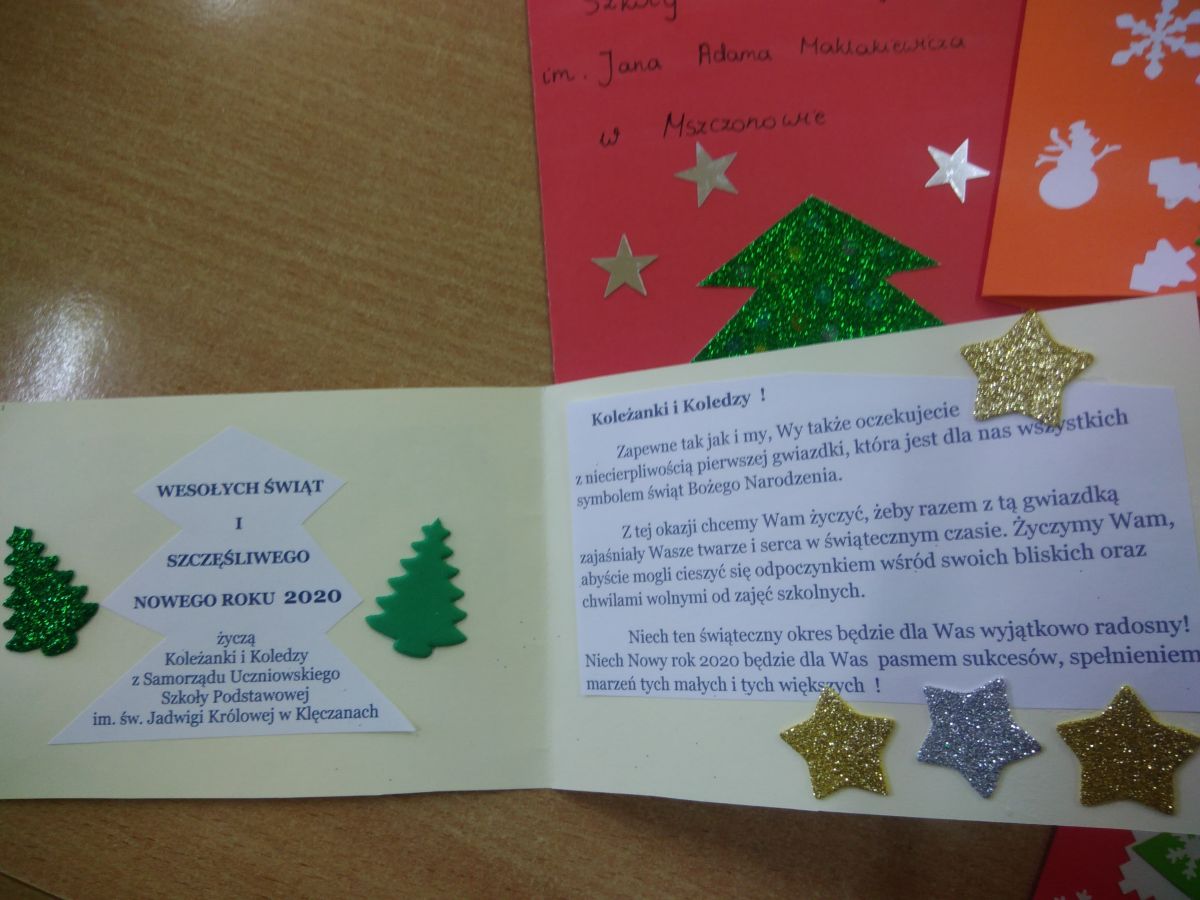 Szkoły
im. Jana Adama Maklakiewicza
w Mszczonowie
WESOŁYCH ŚWIĄT
I
SZCZĘŚLIWEGO
NOWEGO ROKU 2020
życzą
Koleżanki i Koledzy
z Samorządu Uczniowskiego
Szkoły Podstawowej
im. św. Jadwigi Królowej w Klęczanach
Koleżanki i Koledzy !
Zapewne tak jak i my, Wy także oczekujecie
z niecierpliwością pierwszej gwiazdki, która jest dla nas wszystkich
symbolem świąt Bożego Narodzenia.
Z tej okazji chcemy Wam życzyć, żeby razem z tą gwiazdką
zajaśniały Wasze twarze i serca w świątecznym czasie. Życzymy Wam,
abyście mogli cieszyć się odpoczynkiem wśród swoich bliskich oraz
chwilami wolnymi od zajęć szkolnych.
Niech ten świąteczny okres będzie dla Was wyjątkowo radosny!
Niech Nowy rok 2020 będzie dla Was pasmem sukcesów, spełnieniem
marzeń tych małych i tych większych !